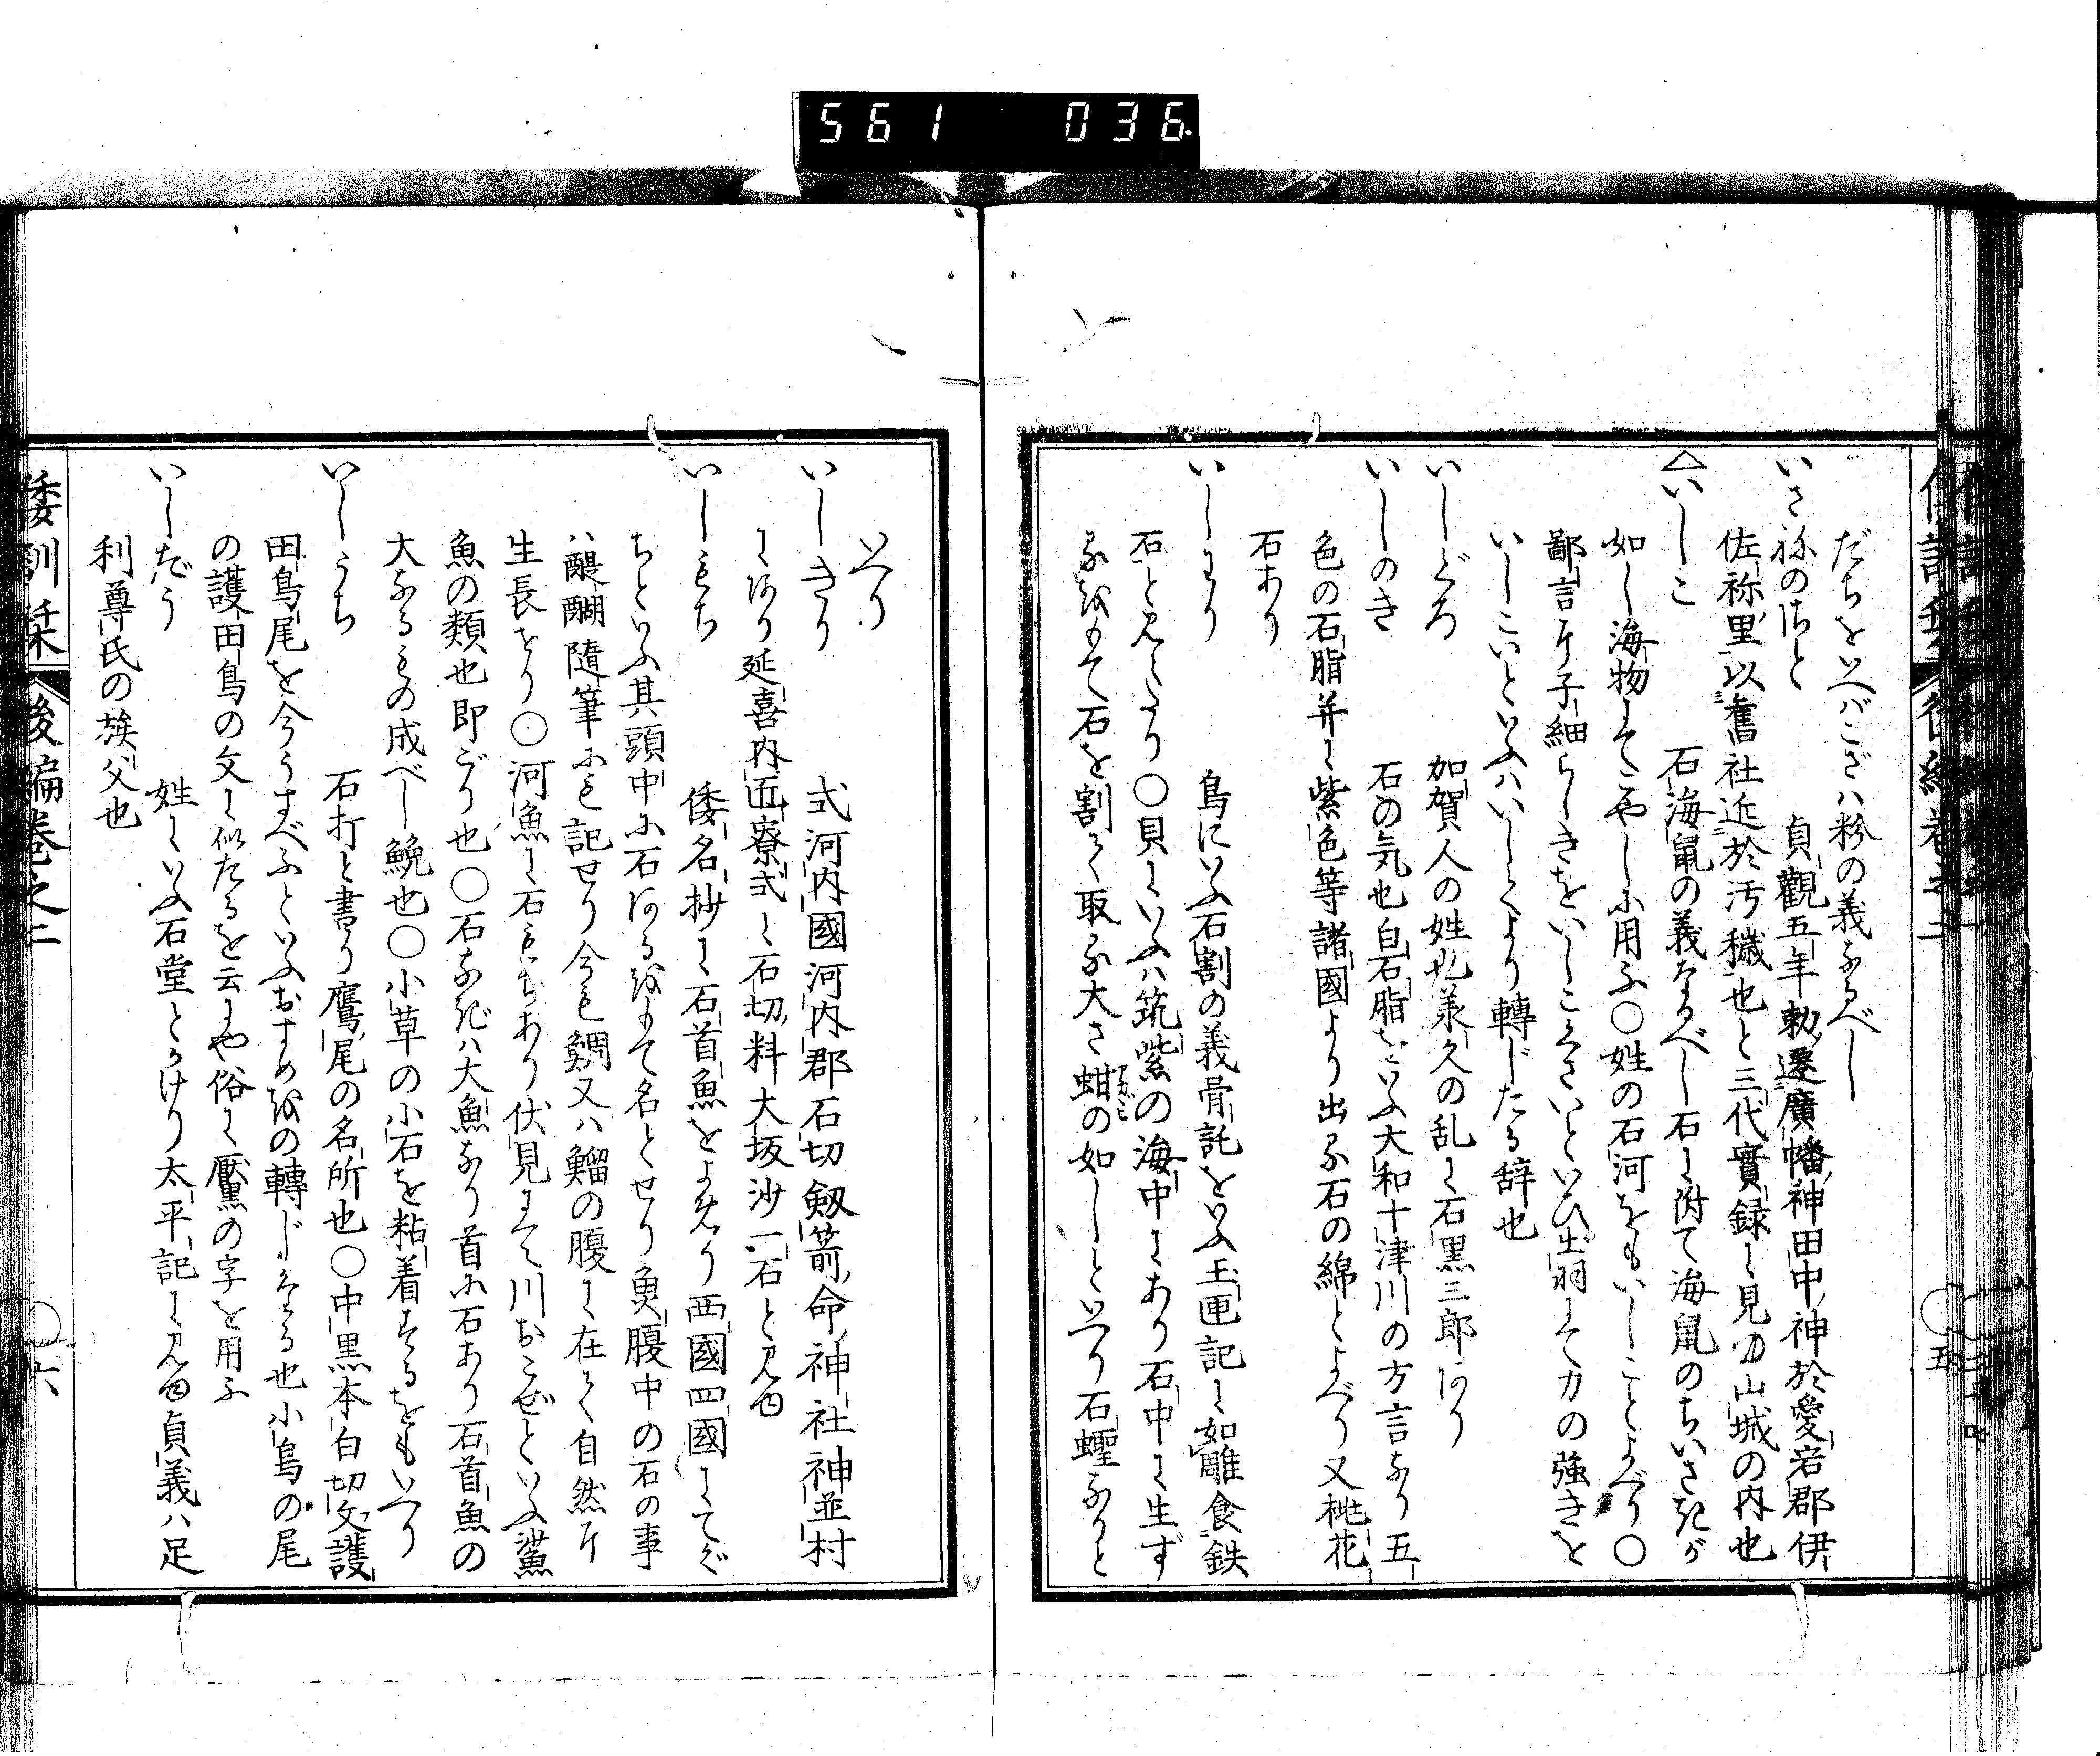 561 036.
だちをいへバこざハ粉の義なるべし
いさねのさと 貞觀五年勅遷廣幡神田中神於愛宕郡伊
佐祢里以舊社近於汚穢也と三代實録に見ゆ山城の内也
△いしこ 石海鼠の義なるべし石に附て海鼠のちいさきが
如し海物にてこやしに用ふ○姓の石河をもいしことよべり○
鄙言に子細らしきをいしこくさいといひ出羽にて力の強きを
いしこいといふハいしくより轉じたる辞也
いしぐろ 加賀人の姓也羕久の乱に石黒三郎あり
いしのき 石の気也白石脂をいふ大和十津川の方言なり五
色の石脂并に紫色等諸國より出る石の綿とよべり又桃花
石あり
いしわり 鳥にいふ石割の義骨託をいふ玉匣記に如雕食鉄
石と見えたり○貝にいふハ筑紫の海中にあり石中に生ず
るをもて石を割て取る大さ蚶の如しといへり石蟶なりと
いへり
いしきり 式河内國河内郡石切劔箭命神社神並村
にあり延喜内匠寮式に石切料大坂沙一石と見ゆ
いしもち 倭名抄に石首魚をよめり西國四國にてぐ
ちといふ其頭中に石あるをもて名とせり魚腹中の石の事
ハ醍醐隨筆にも記せり今も鯛又ハ鰡の腹に在て自然に
生長をり○河魚に石もちあり伏見にて川おこぜといふ鯊
魚の類也即ごり也○石なぎハ大魚なり首に石あり石首魚の
大なるもの成べし鮸也○小草の小石を粘着するをもいへり
いしうち 石打と書り鷹尾の名所也○中黒本白切文護
田鳥尾を今うすべふといふおすめをの轉じたる也小鳥の尾
の護田鳥の文に似たるを云にや俗に黶の字を用ふ
いしだう 姓にいふ石堂とかけり太平記に見ゆ貞義ハ足
利尊氏の族父也
倭訓栞 後編巻之二 ○六